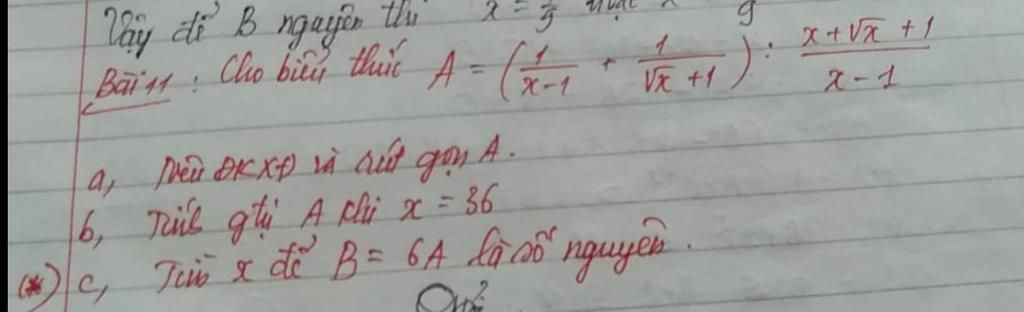 Vậy để B nguyên thì x =
Bài 11 : Cho biểu thức A = (1/(x-1) + 1/(√x +1)) : (x+√x +1)/(x-1)
a, Nêu ĐKXĐ và rút gọn A.
b, Tính gtrị A khi x = 36
(*) c, Tìm x để B = 6A là số nguyên.